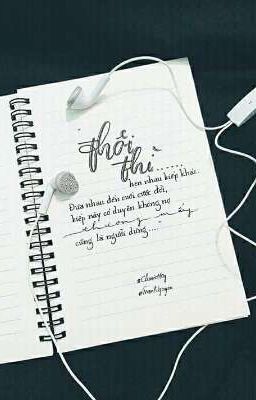 Thôi
thì......
hẹn nhau kiếp khác.
Đưa nhau đến cuối cuộc đời,
kiếp này có duyên không nợ
thương mấy
cũng là người dưng....